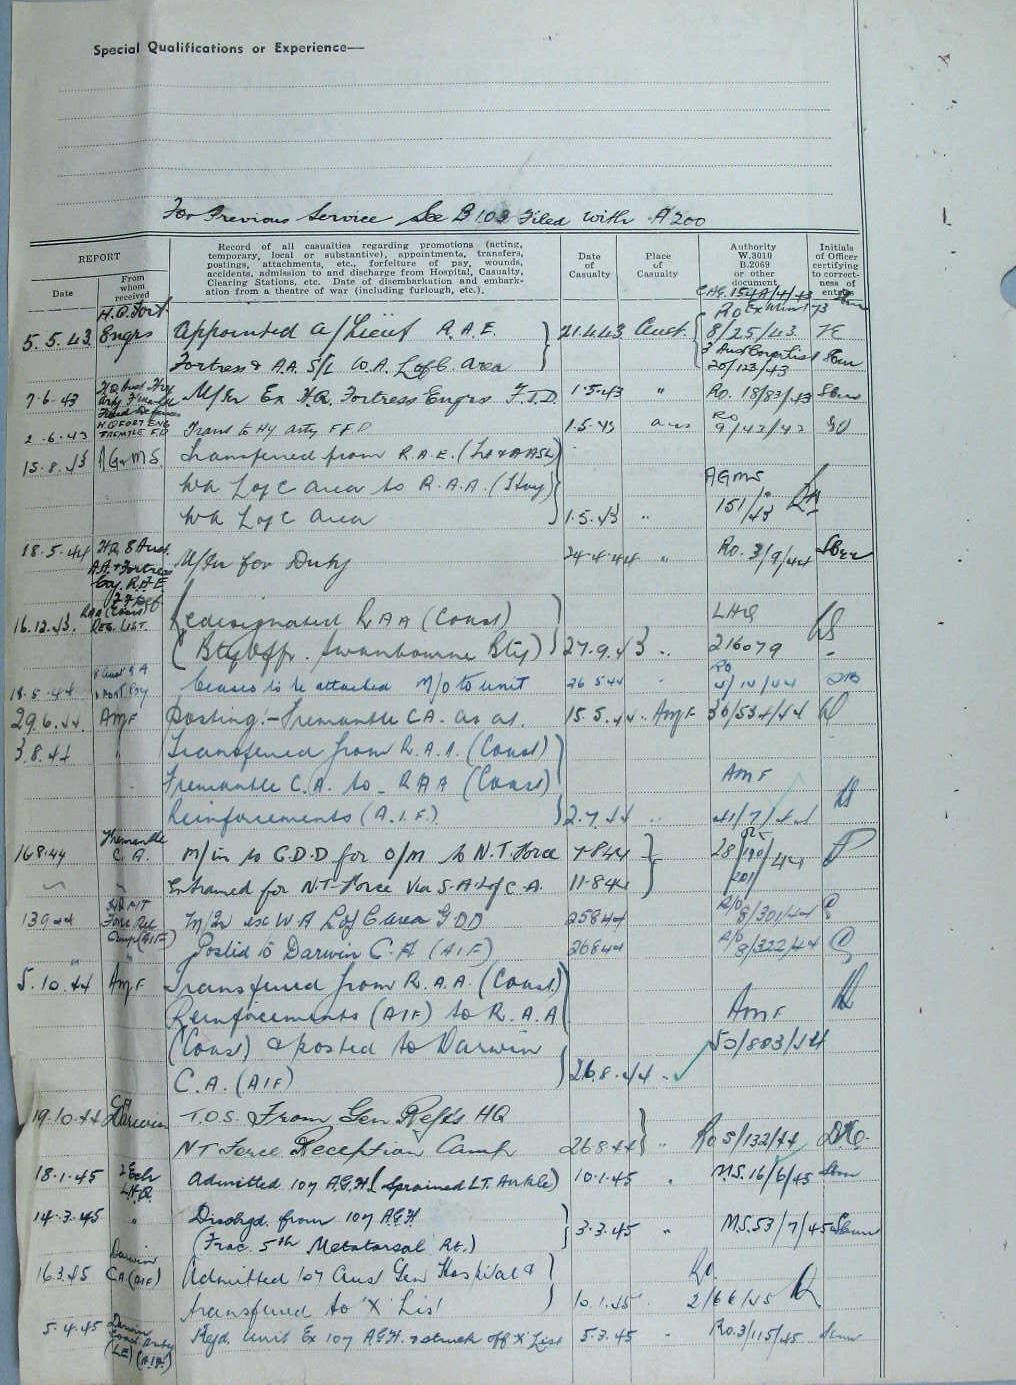 Special Qualifications or Experience—
For Previous Service See B 103 Filed with A 200
REPORT
Date
From whom received
Record of all casualties regarding promotions (acting,
temporary, local or substantive), appointments, transfers,
postings, attachments, etc., forfeiture of pay, wounds,
accidents, admission to and discharge from Hospital, Casualty,
Clearing Stations, etc. Date of disembarkation and embark-
ation from a theatre of war (including furlough, etc.).
Date of Casualty
Place of Casualty
Authority W.3010 B.2069 or other document
Initials of Officer certifying to correct- ness of entry
H.Q. Fort. 154A/4/43
5.5.43 Engrs Appointed a/Lieut R.A.E. 21.4.43 Aust. 8/25/43
Fortress & A.A. S/L W.A. L of C. Area 20/123/43
7.6.43 M/In Ex H.Q. Fortress Engrs F.F.D. 1.5.43 " R.O. 18/83/43
H.Q FORT ENG
2.6.43 FREMTLE F.D Trans to Hy Arty F F D 1.5.43 Aus RO 9/42/43
15.8.43 AG & MS. Transferred from R.A.E. (Fort & AASL)
WA L of C Area to R.A.A. (Hvy) AGMS
WA L of C Area 1.5.43 " 151/43
18.5.44 HQ 8 Aust. M/In for Duty 24.4.44 " Ro. 3/9/44
A.A. & Fortress
Coy. R.A.E
RAA (Coast)
16.12.43. REG. LIST. Redesignated RAA (Coast) LHQ
(Bty Offr. Swanbourne Bty) 27.9.43 " 216079
18.5.44 Ceases to be attached M/O to unit 26 5 44 " RO 4/14/44
29.6.44 AMF Posting:- Fremantle C.A. as at. 15.5.44 AMF 36/534/44
3.8.44 " Transferred from R.A.A. (Coast)
Fremantle C.A. to RAA (Coast) AMF
Reinforcements (A.I.F.) 2.7.44 " 41/7/44
16.8.44 Fremantle C.A. M/in to G.D.D for O/M to N.T. Force 7.8.44
" " Entrained for N.T. Force via S.A. L of C.A. 11.8.44
13 9 44 M/In ex W A L of C area GDD 25 8 44 R/O 8/301/44
Posted to Darwin C.A (AIF) 26 8 44 R/O 8/322/44
5.10.44 AMF Transferred from R.A.A. (Coast)
Reinforcements (AIF) to R.A.A AMF
(Coast) & posted to Darwin 50/803/44
C.A. (AIF) 26.8.44 "
19.10.44 CA Darwin T.O.S. From Gen Refts HQ
NT Force Reception Camp 26 8 44 " Ro 5/132/44
18.1.45 2 Ech LHQ. Admitted 107 A.G.H. (Sprained LT. Ankle) 10.1.45 " M.S. 16/6/45
14.3.45 " Dischgd. from 107 A.G.H.
(Frac. 5th Metatarsal Rt.) 3.3.45 " M.S. 53/7/45
16.3.45 Darwin CA (AIF) Admitted 107 Aust Gen Hospital & Ro.
transferred to 'X' List 10.1.45 2/66/45
5.4.45 Darwin Coast Arty (LE) (A.I.F.) Rejd Unit Ex 107 A.G.H. & struck off 'X' List 5.3.45 " Ro. 3/115/45